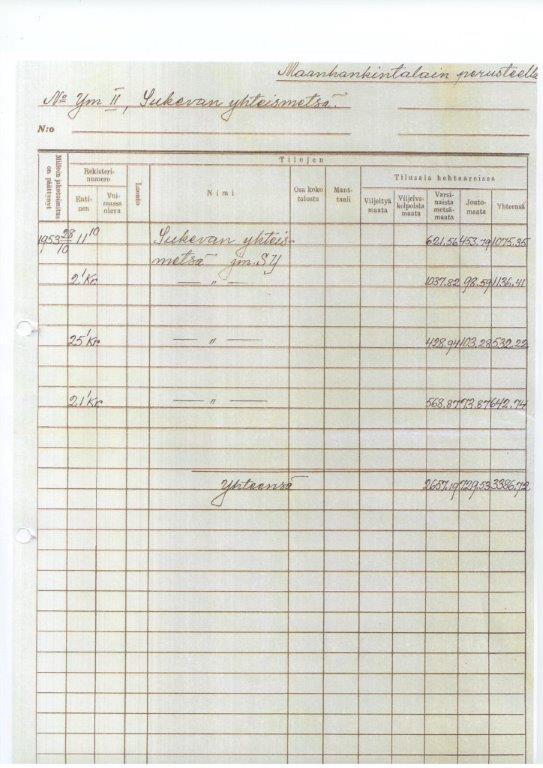 Maanhankintalain perusteella
No Ym II, Sukevan yhteismetsä.
N:o
Tilojen
Milloin jakotoimitus on päättynyt
Rekisterinumero
Entinen
Voimassa oleva
Luonto
Nimi
Osa koko talosta
Manttaali
Tiluksia hehtaareissa
Viljeltyä maata
Viljelyskelpoista maata
Varsinaista metsämaata
Joutomaata
Yhteensä
1953 28/10 11 10 Sukevan yhteis- 621.56 453.79 1075.35
metsä ym. SY
2 1 Kr — " — 1037.82 98.59 1136.41
25 1 Kr — " — 428.94 103.28 532.22
21 1 Kr — " — 568.87 73.87 642.74
Yhteensä 2657.19 729.53 3386.72